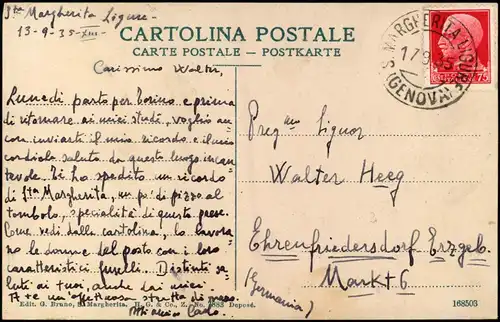 Sta Margherita Ligure -
13-9-35-XIII-
CARTOLINA POSTALE
CARTE POSTALE - POSTKARTE
Carissimo Walter,
Lunedì parto per Torino e prima
di ritornare ai miei studi, voglio an-
cora inviarti il mio ricordo e il mio
cordiale saluto da questo luogo incan-
tevole. Ti ho spedito un ricordo
di Sta Margherita, un po' di pizzo al
tombolo, specialità di questo paese.
Come vedi dalla cartolina, lo lavora-
no le donne del posto con i loro
caratteristici fuselli. Distinti sa-
luti ai tuoi, anche dai miei
A te un' affettuosa stretta di mano.
S. MARGHERITA LIGURE
(GENOVA)
Preg.mo Signor
Walter Heeg
Ehrenfriedersdorf Erzgeb.
Markt 6
(Germania)
Edit. G. Bruno, S. Margherita. H. G. & Co., Z. - No. Deposé.
168503